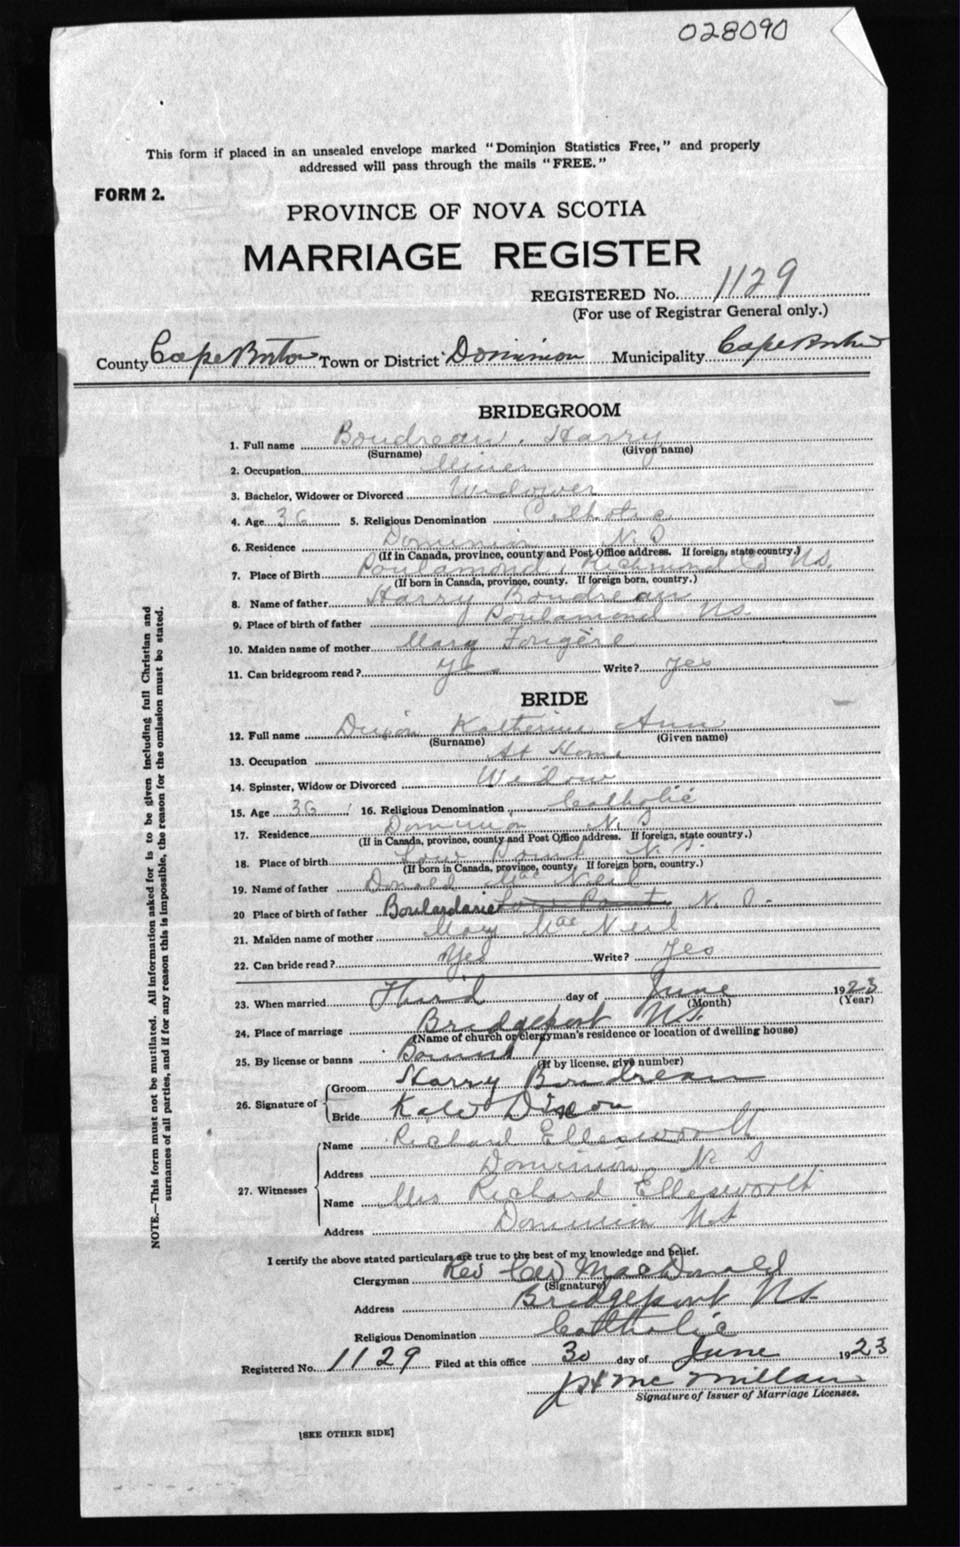 028090
This form if placed in an unsealed envelope marked "Dominion Statistics Free," and properly
addressed will pass through the mails "FREE."
FORM 2.
PROVINCE OF NOVA SCOTIA
MARRIAGE REGISTER
REGISTERED No. 1129
(For use of Registrar General only.)
County Cape Breton Town or District Dominion Municipality Cape Breton
BRIDEGROOM
1. Full name Boudreau, Harry
(Surname) (Given name)
2. Occupation Miner
3. Bachelor, Widower or Divorced Widower
4. Age 36 5. Religious Denomination Catholic
6. Residence Dominion N.S
(If in Canada, province, county and Post Office address. If foreign, state country.)
7. Place of Birth Poulamond, Richmond Co NS.
(If born in Canada, province, county. If foreign born, country.)
8. Name of father Harry Boudreau
9. Place of birth of father Poulamond NS.
10. Maiden name of mother Mary Fougère
11. Can bridegroom read? Yes Write? yes
BRIDE
12. Full name Dixon Katherine Ann
(Surname) (Given name)
13. Occupation At Home
14. Spinster, Widow or Divorced Widow
15. Age 36 16. Religious Denomination Catholic
17. Residence Dominion N.S
(If in Canada, province, county and Post Office address. If foreign, state country.)
18. Place of birth Low Point N.S.
(If born in Canada, province, county, If foreign born, country.)
19. Name of father Donald Mac Neil
20 Place of birth of father Boulardarie Low Point N.S.
21. Maiden name of mother Mary Mac Neil
22. Can bride read? Yes Write? Yes
23. When married Third day of June 1923
(Month) (Year)
24. Place of marriage Bridgeport NS.
(Name of church or clergyman's residence or location of dwelling house)
25. By license or banns Banns
(If by license, give number)
26. Signature of Groom Harry Boudreau
Bride Kate Dixon
27. Witnesses Name Richard Ellesworth
Address Dominion, N S
Name Mrs Richard Ellesworth
Address Dominion NS
I certify the above stated particulars are true to the best of my knowledge and belief.
Clergyman Rev MacDonald
(Signature)
Address Bridgeport NS
Religious Denomination Catholic
Registered No. 1129 Filed at this office 30 day of June 1923
McMillan
Signature of Issuer of Marriage Licenses.
[SEE OTHER SIDE]
NOTE.—This form must not be mutilated. All information asked for is to be given including full Christian and
surnames of all parties, and if for any reason this is impossible, the reason for the omission must be stated.